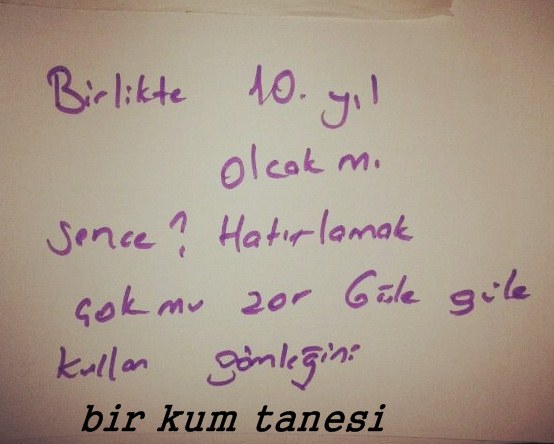 Birlikte 10. yıl
olcak mı
sence? Hatırlamak
çok mu zor Güle güle
kullan gömleğini
bir kum tanesi